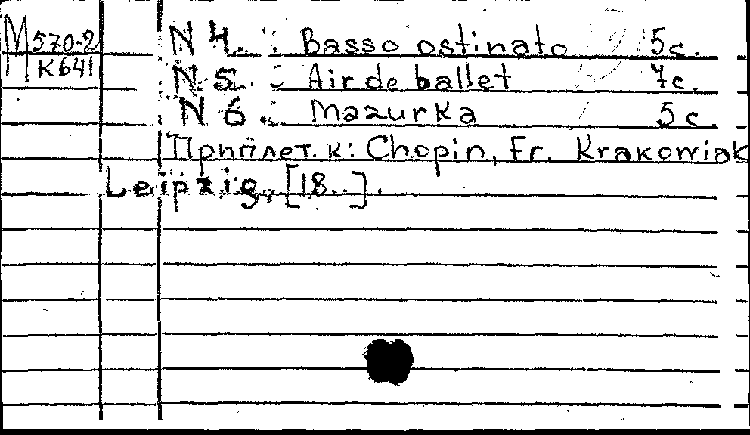 М 570-2
К641
N 4. : Basso ostinato 5с.
N 5 : Air de ballet 7с.
N 6 : Mazurka 5с.
Приплет. к: Chopin, Fr. Krakowiak
Leipzig, [18..].